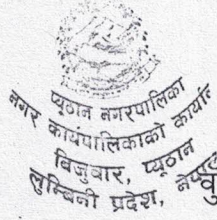 प्यूठान नगरपालिका
नगर कार्यपालिकाको
बिजुवार, प्यूठान
लुम्बिनी प्रदेश,